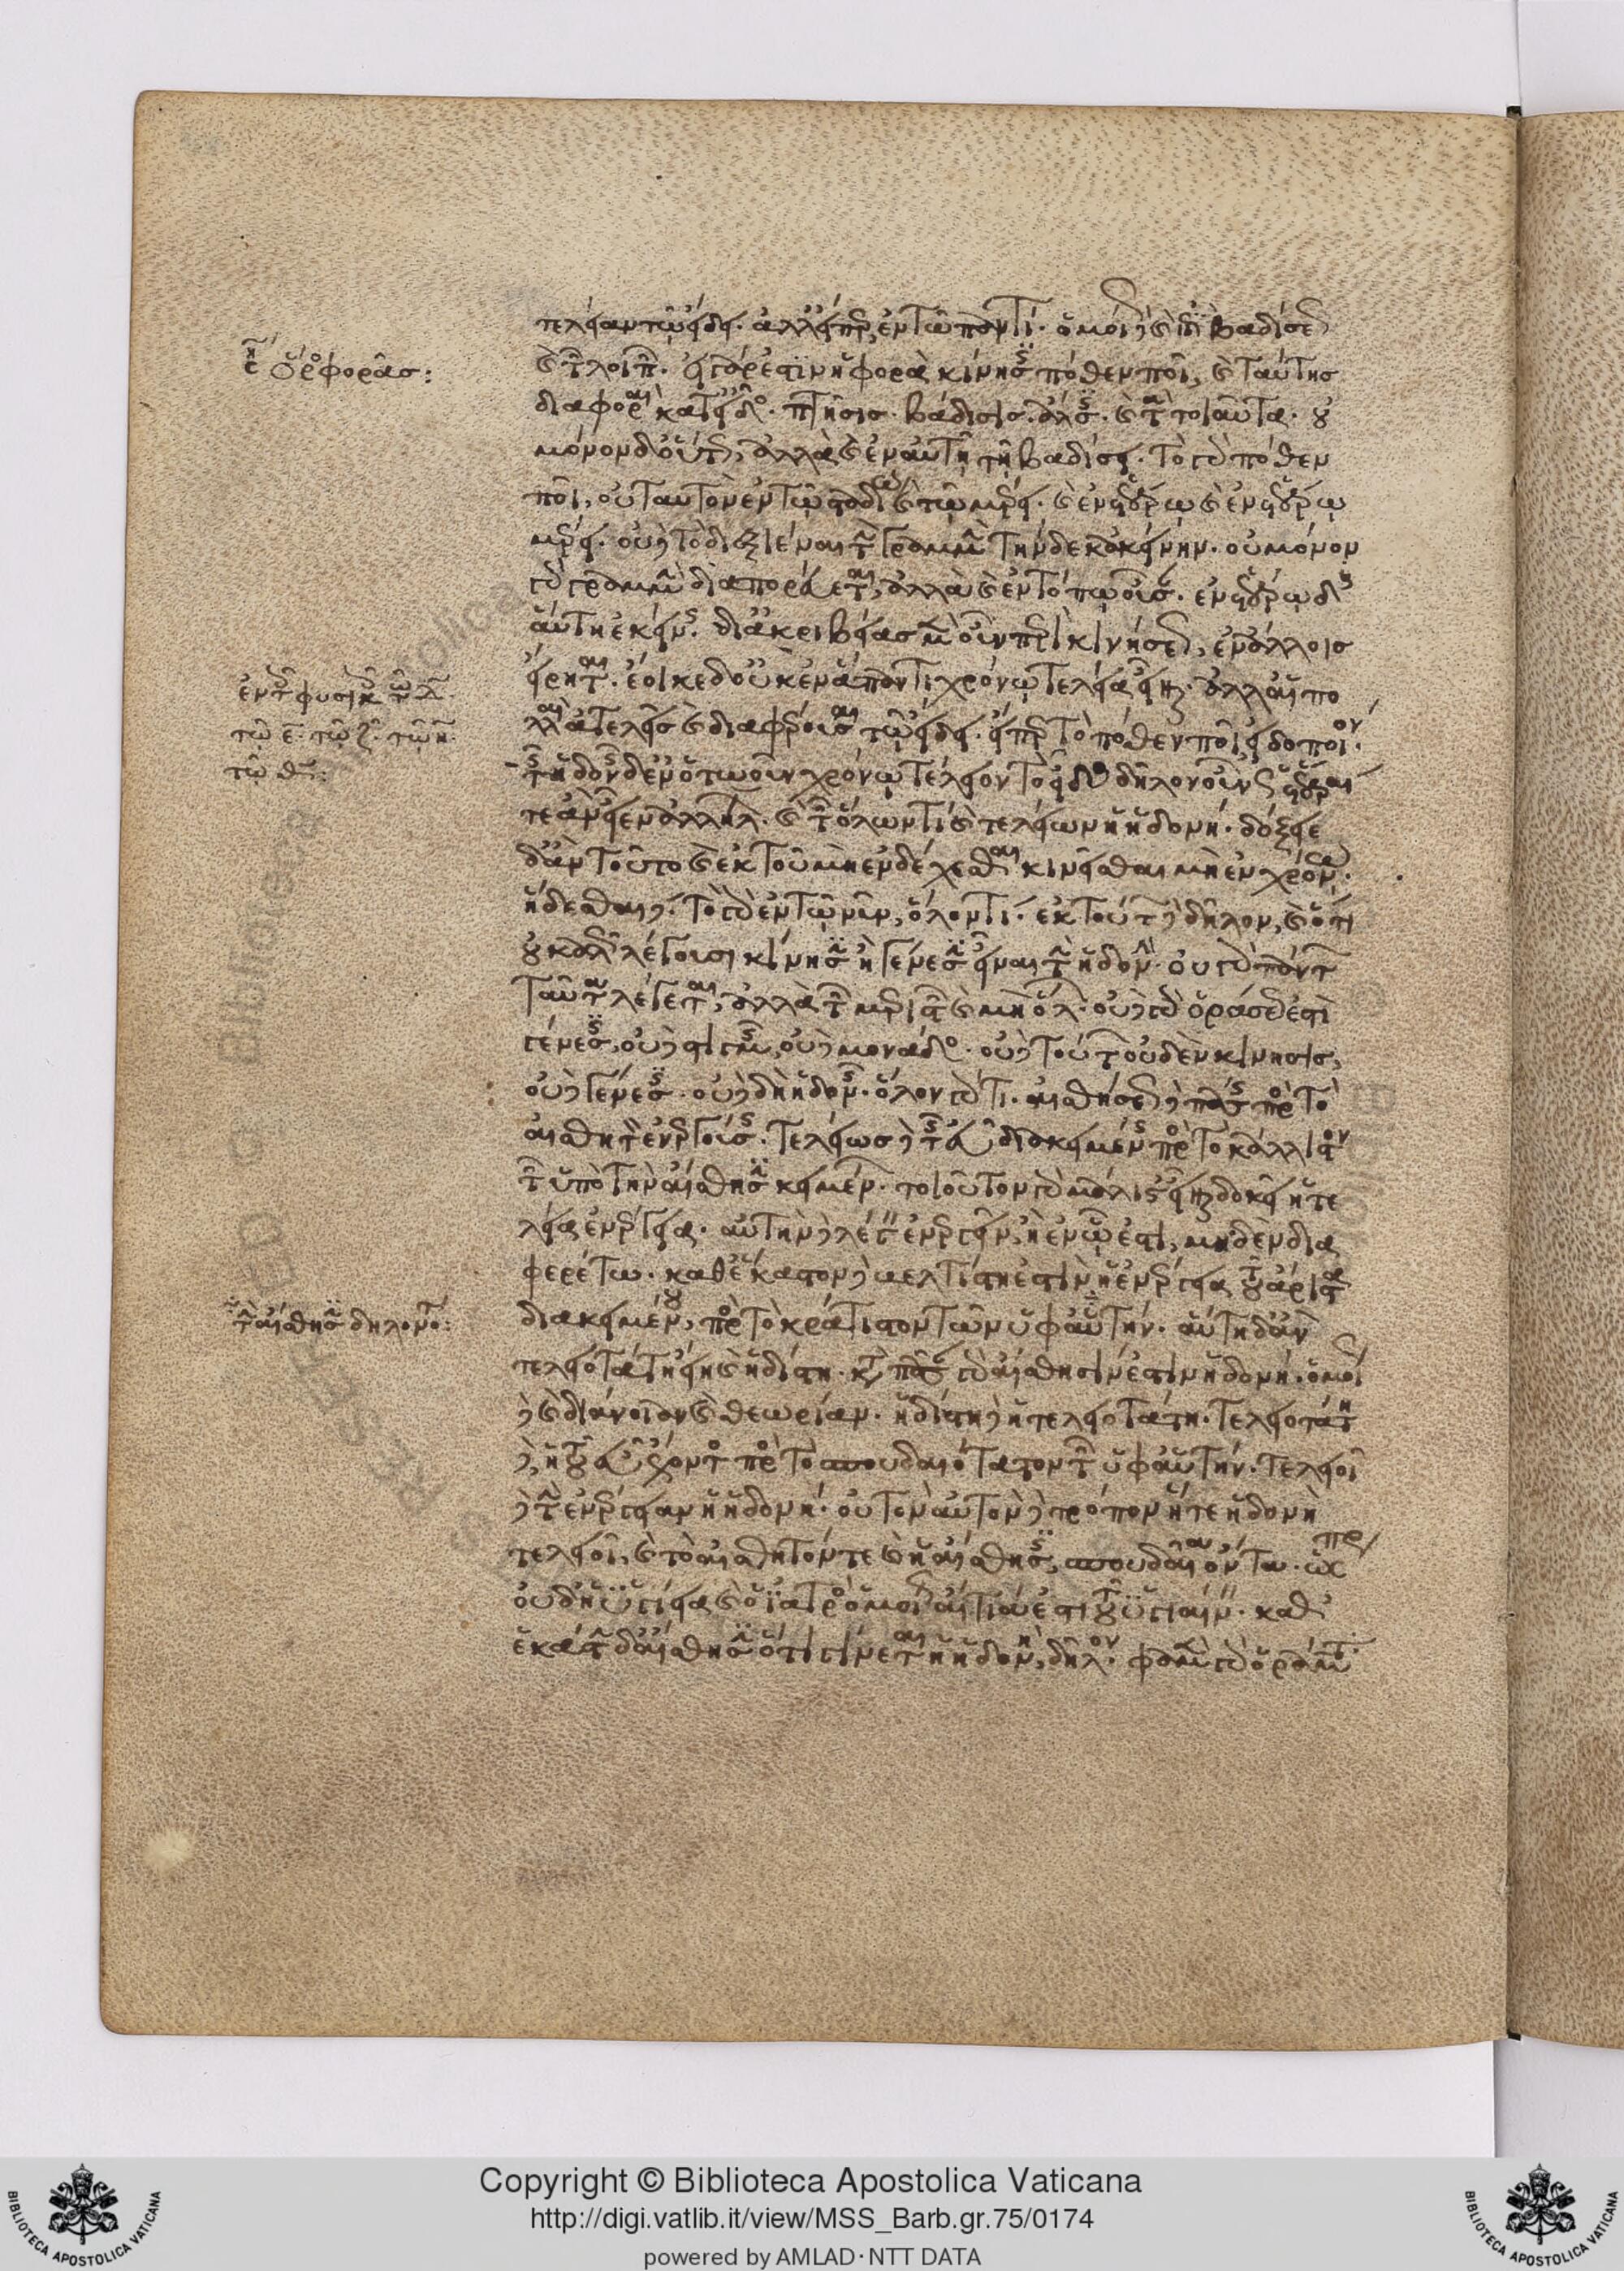 τελείαν τῷ εἴδει. ἀλλ' εἴπερ, ἐν τῷ παντί. ὁμοίως δὲ καὶ ἐπὶ βαδίσεως
ὅρος φορᾶς:
καὶ τῶν λοιπῶν. εἰ γάρ ἐστιν ἡ φορὰ κίνησις πόθεν ποῖ, καὶ ταύτης
διαφοραὶ κατ' εἴδος. πτῆσις. βάδισις. ἅλσις. καὶ τὰ τοιαῦτα. οὐ
μόνον δ' οὕτως, ἀλλὰ καὶ ἐν αὐτῇ τῇ βαδίσει. τὸ γὰρ πόθεν
ποῖ, οὐ ταυτὸν ἐν τῷ σταδίῳ καὶ τῷ μέρει. καὶ ἐν ἑτέρῳ καὶ ἐν ἑτέρῳ
μέρει. οὐδὲ τὸ διεξιέναι τὴν γραμμὴν τήνδε κἀκείνην. οὐ μόνον
γὰρ γραμμὴν διαπορεύεται, ἀλλὰ καὶ ἐν τόπῳ οὖσαν. ἐν ἑτέρῳ δ'
αὕτη ἐκείνης. δι' ἀκριβείας μὲν οὖν περὶ κινήσεως, ἐν ἄλλοις
ἐν τοῖς φυσικοῖς
τῷ ε. τῷ ζ. τῷ η.
τῷ θ:
εἴρηται. ἔοικε δ' οὐκ ἐν ἅπαντι χρόνῳ τελεία εἶναι. ἀλλ' αἱ πο
λλαὶ ἀτελεῖς καὶ διαφέρουσαι τῷ εἴδει. εἴπερ τὸ πόθεν ποῖ εἰδοποιόν.
τῆς ἡδονῆς δ' ἐν ὁτωοῦν χρόνῳ τέλειον τὸ εἶδος δῆλον οὖν ὡς ἕτεραί
τε ἂν εἶεν ἀλλήλων. καὶ τῶν ὅλων τι καὶ τελείων ἡ ἡδονή. δόξειε
δ' ἂν τοῦτο καὶ ἐκ τοῦ μὴ ἐνδέχεσθαι κινεῖσθαι μὴ ἐν χρόνῳ.
ἥδεσθαι δέ. τὸ γὰρ ἐν τῷ νῦν, ὅλον τι. ἐκ τούτων δὲ δῆλον, καὶ ὅτι
οὐ καλῶς λέγουσι κίνησιν ἢ γένεσιν εἶναι τὴν ἡδονήν. οὐ γὰρ πάντων
ταῦτα λέγεται, ἀλλὰ τῶν μεριστῶν καὶ μὴ ὅλων. οὐδὲ γὰρ ὁράσεώς ἐστι
γένεσις, οὐδὲ στιγμῆς, οὐδὲ μονάδος. οὐδὲ τούτων οὐδὲν κίνησις,
οὐδὲ γένεσις. οὐδὲ δὴ ἡδονῆς. ὅλον γάρ τι. αἰσθήσεως δὲ πάσης πρὸς τὸ
αἰσθητὸν ἐνεργούσης. τελείως δὲ τῆς εὖ διακειμένης πρὸς τὸ κάλλιστον
τῶν ὑπὸ τὴν αἴσθησιν κειμένων. τοιοῦτον γὰρ μάλιστ' εἶναι δοκεῖ ἡ τε
λεία ἐνέργεια. αὐτὴν δὲ λέγειν ἐνεργεῖν, ἢ ἐν ᾧ ἐστι, μηδὲν δια
φερέτω. καθ' ἕκαστον δὲ βελτίστη ἐστὶν ἡ ἐνέργεια τοῦ ἄριστα
τὴν αἴσθησιν δηλονότι:
διακειμένου, πρὸς τὸ κράτιστον τῶν ὑφ' αὑτήν. αὕτη δ' ἂν
τελειοτάτη εἴη καὶ ἡδίστη. κατὰ πᾶσαν γὰρ αἴσθησίν ἐστιν ἡδονή. ὁμοίως
δὲ καὶ διάνοιαν καὶ θεωρίαν. ἡδίστη δὲ ἡ τελειοτάτη. τελειοτάτη
δὲ, ἡ τοῦ εὖ ἔχοντος πρὸς τὸ σπουδαιότατον τῶν ὑφ' αὑτήν. τελειοῖ
δὲ τὴν ἐνέργειαν ἡ ἡδονή. οὐ τὸν αὐτὸν δὲ τρόπον ἥ τε ἡδονὴ
τελειοῖ, καὶ τὸ αἰσθητόν τε καὶ ἡ αἴσθησις, σπουδαῖα ὄντα. ὥσπερ
οὐδ' ἡ ὑγίεια καὶ ὁ ἰατρὸς ὁμοίως αἴτιά ἐστι τοῦ ὑγιαίνειν. καθ'
ἑκάστην δ' αἴσθησιν ὅτι γίνεται ἡ ἡδονὴ, δῆλον. φαμὲν γὰρ ὁράματα
Copyright © Biblioteca Apostolica Vaticana
http://digi.vatlib.it/view/MSS_Barb.gr.75/0174
powered by AMLAD·NTT DATA
BIBLIOTECA APOSTOLICA VATICANA
BIBLIOTECA APOSTOLICA VATICANA